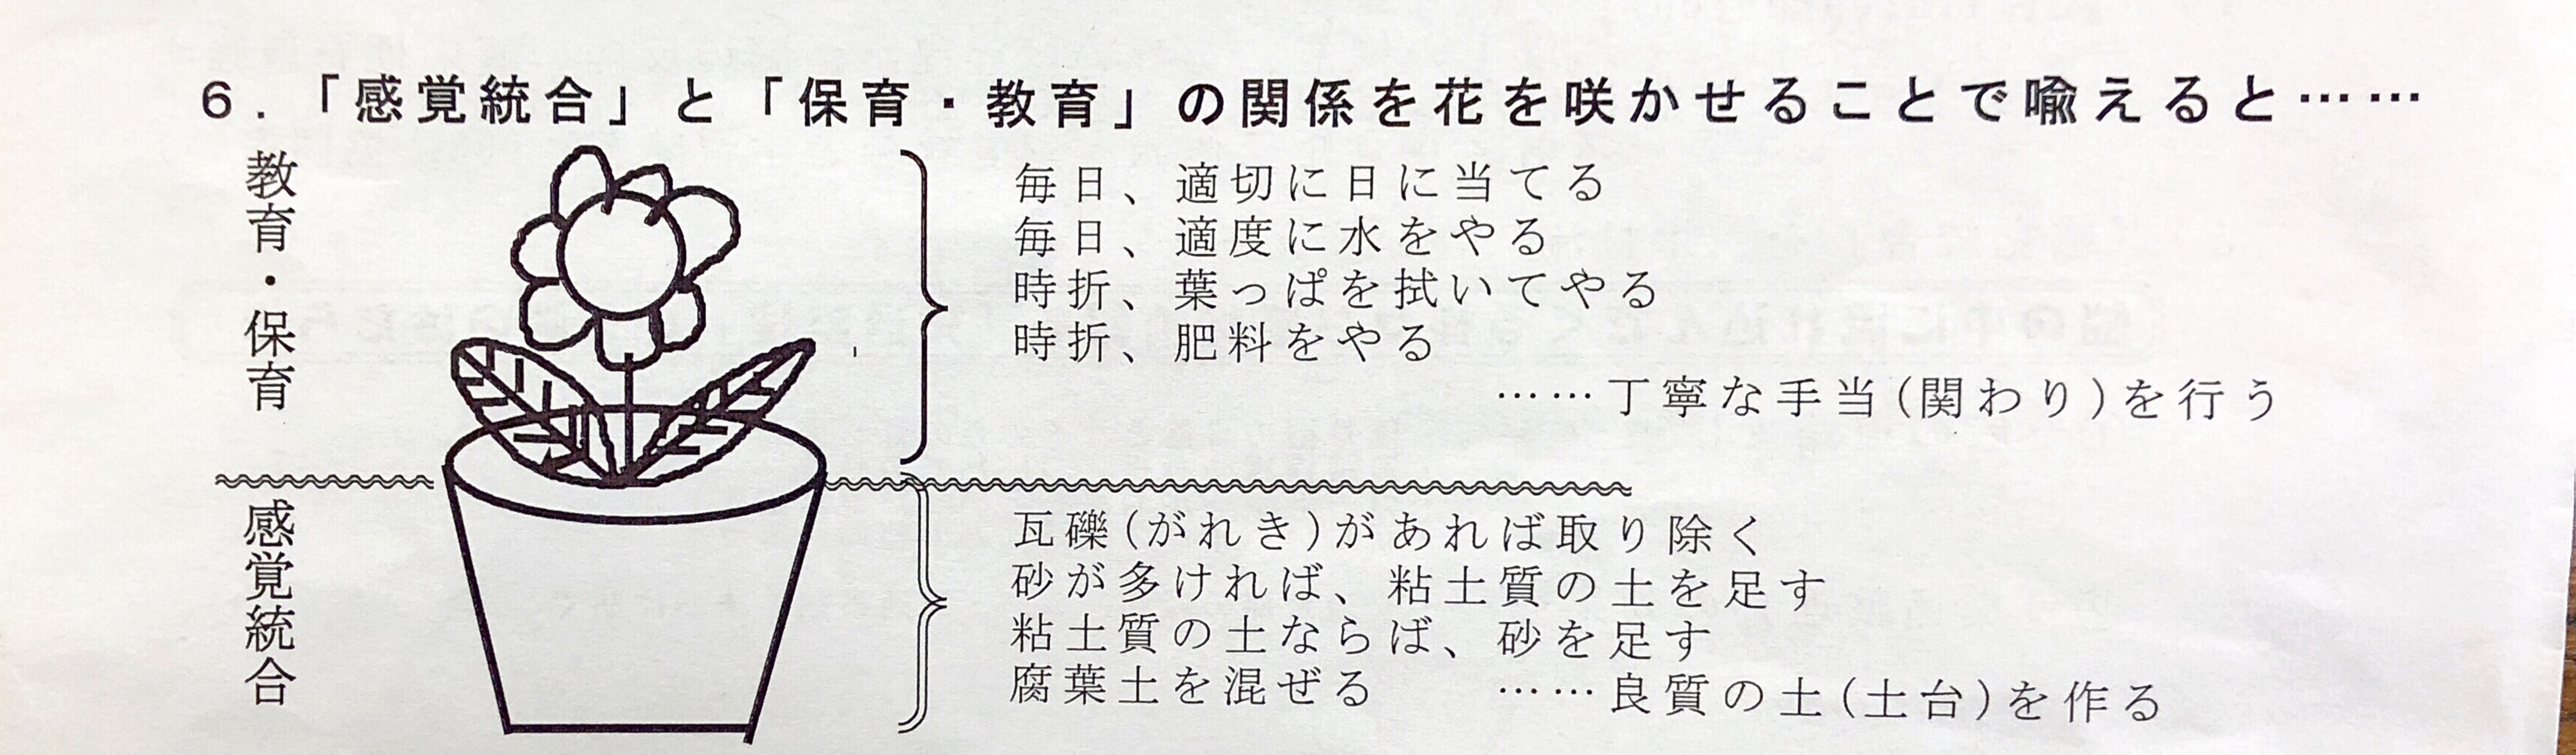 6.「感覚統合」と「保育・教育」の関係を花を咲かせることで喩えると……
教育・保育
毎日、適切に日に当てる
毎日、適度に水をやる
時折、葉っぱを拭いてやる
時折、肥料をやる
……丁寧な手当(関わり)を行う
感覚統合
瓦礫(がれき)があれば取り除く
砂が多ければ、粘土質の土を足す
粘土質の土ならば、砂を足す
腐葉土を混ぜる ……良質の土(土台)を作る